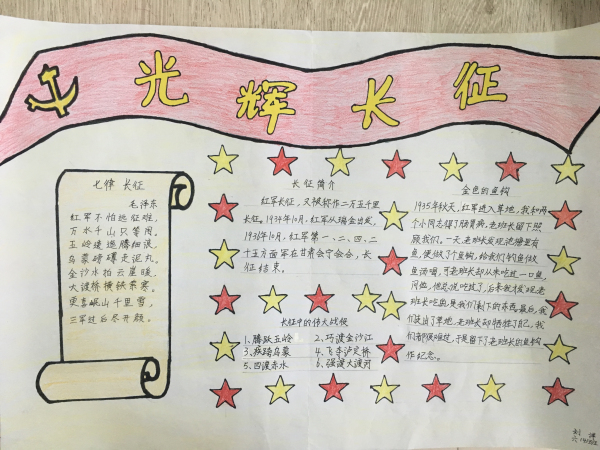 光辉长征
七律 长征
毛泽东
红军不怕远征难，
万水千山只等闲。
五岭逶迤腾细浪，
乌蒙磅礴走泥丸。
金沙水拍云崖暖，
大渡桥横铁索寒。
更喜岷山千里雪，
三军过后尽开颜。
长征简介
红军长征，又被称作二万五千里
长征。1934年10月，红军从瑞金出发，
1936年10月，红军第一、二、四、二
十五方面军在甘肃会宁会合，长
征结束。
长征中的伟大战役
1、腾跃五岭 2、巧渡金沙江
3、疾跨乌蒙 4、飞夺泸定桥
5、四渡赤水 6、强渡大渡河
金色的鱼钩
1935年秋天，红军进入草地，我和两
个小同志得了肠胃病，老班长留下照
顾我们。一天，老班长发现池塘里有
鱼，便做了个鱼钩，给我们钓鱼做
鱼汤喝，可老班长却从来吃过一口鱼，
问他，他总说吃过了，后来我发现老
班长吃的是我们剩下的东西，最后，我
们走出了草地，老班长却牺牲了自己，我
们都很难过，于是留下了老班长的鱼钩
作纪念。